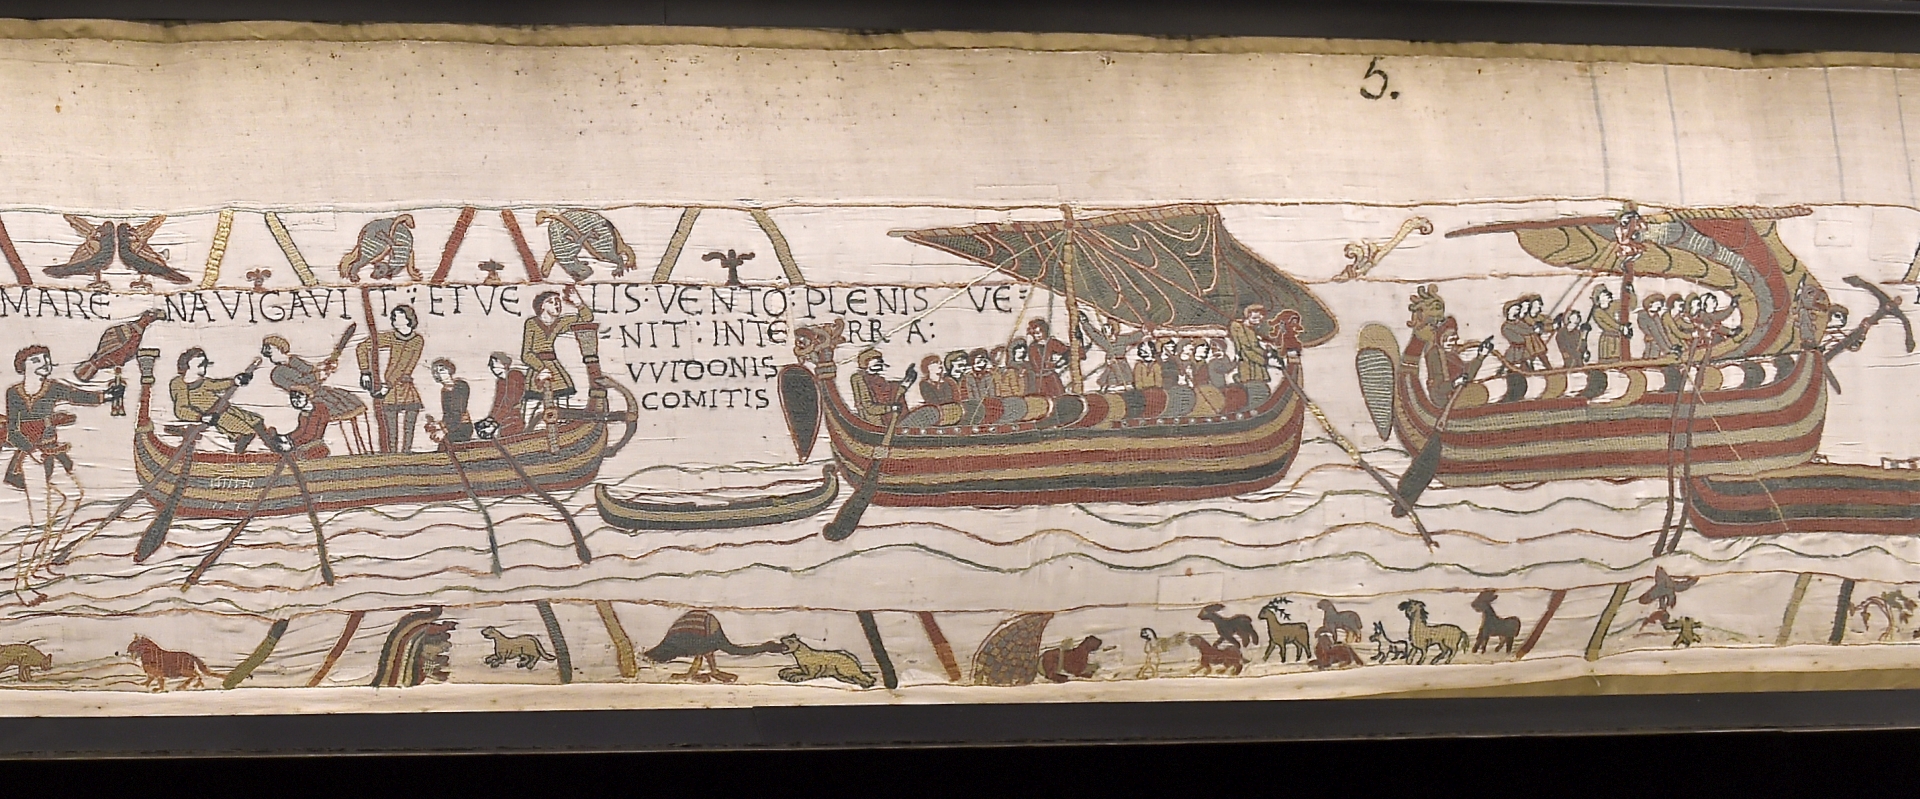 5.
MARE NAVIGAVIT : ET VELIS · VENTO : PLENIS VE =
= NIT : INTERRA :
VVIDONIS
COMITIS